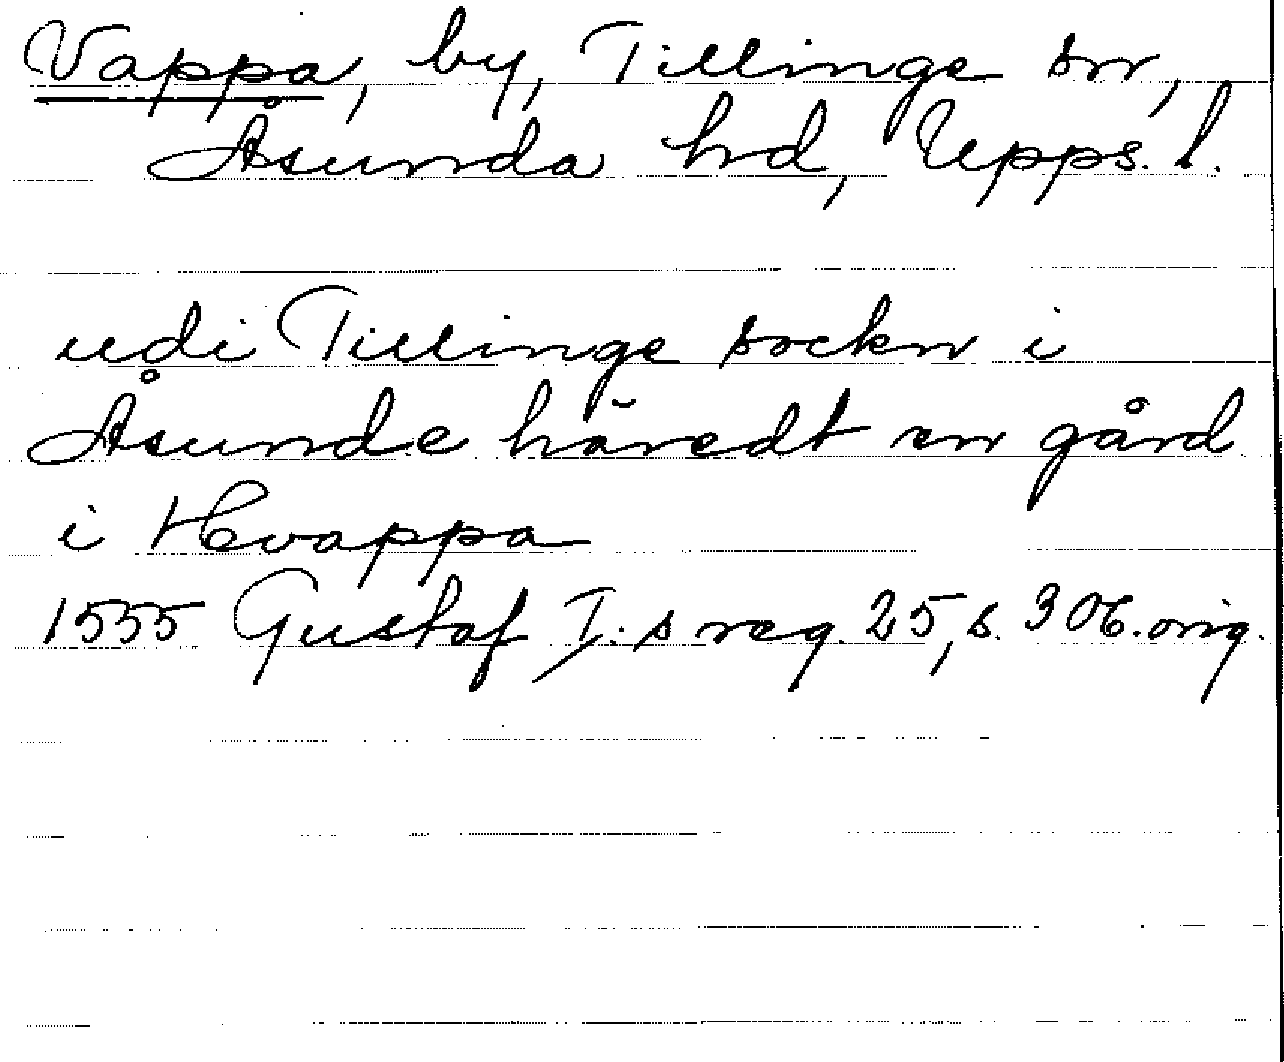 Vappa, by, Tillinge sn,
Åsunda hd, Upps. l.
udi Tillinge sockn i
Åsunde häredt en gård
i Hvappa
1555 Gustaf I:s reg. 25, s. 306. orig.